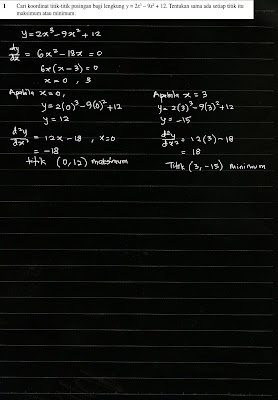 1 Cari koordinat titik-titik pusingan bagi lengkung y = 2x³ – 9x² + 12. Tentukan sama ada setiap titik itu
maksimum atau minimum.
y = 2x³ - 9x² + 12
dy/dx = 6x² - 18x = 0
6x(x - 3) = 0
x = 0 , 3
Apabila x = 0,
y = 2(0)³ - 9(0)² + 12
y = 12
d²y/dx² = 12x - 18 , x = 0
= -18
titik (0, 12) maksimum
Apabila x = 3
y = 2(3)³ - 9(3)² + 12
y = -15
d²y/dx² = 12(3) - 18
= 18
Titik (3, -15) minimum